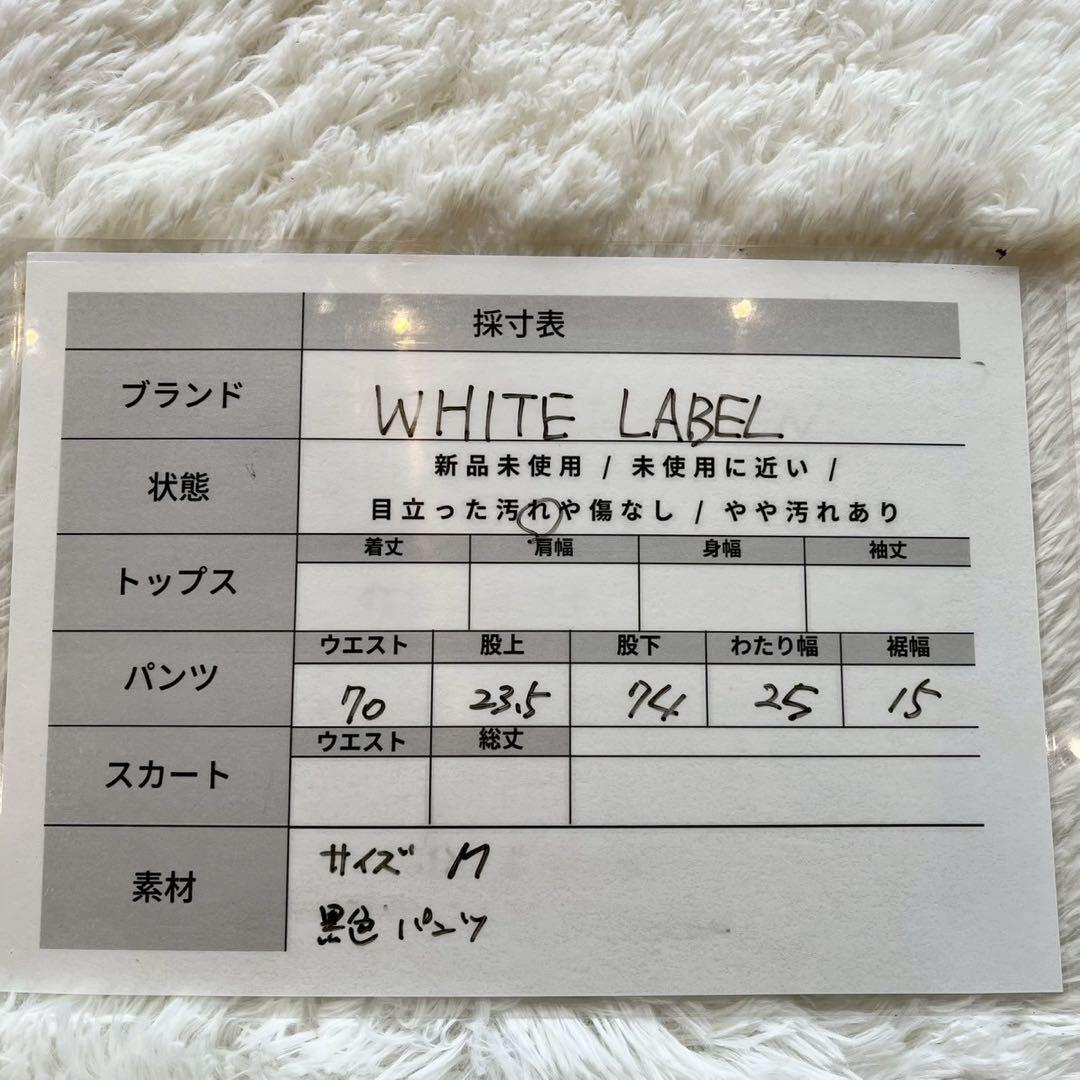 採寸表
ブランド
WHITE LABEL
状態
新品未使用 / 未使用に近い /
目立った汚れや傷なし / やや汚れあり
トップス
着丈 肩幅 身幅 袖丈
パンツ
ウエスト 股上 股下 わたり幅 裾幅
70 23.5 74 25 15
スカート
ウエスト 総丈
素材
サイズ M
黒色 パンツ